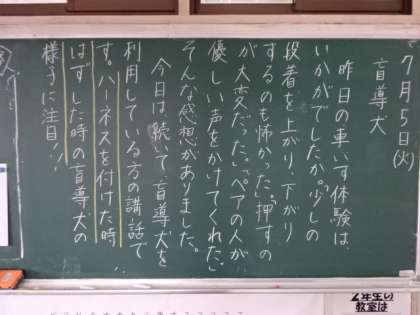 7月5日(火)
盲導犬
昨日の車いす体験は、
いかがでしたか。「少しの
段差を上がり、下がり
するのも怖かった」「押すの
が大変だった。」「ペアの人が
優しい声をかけてくれた。」
そんな感想がありました。
今日は続いて盲導犬を
利用している方の講話で
す。ハーネスを付けた時
はずした時の盲導犬の
様子に注目!!
2年生の
教室は